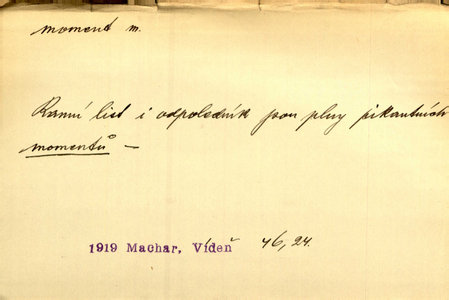 moment m.
Ranní list i odpoledník jsou plny pikantních
momentů —
1919 Machar, Vídeň 46,24.